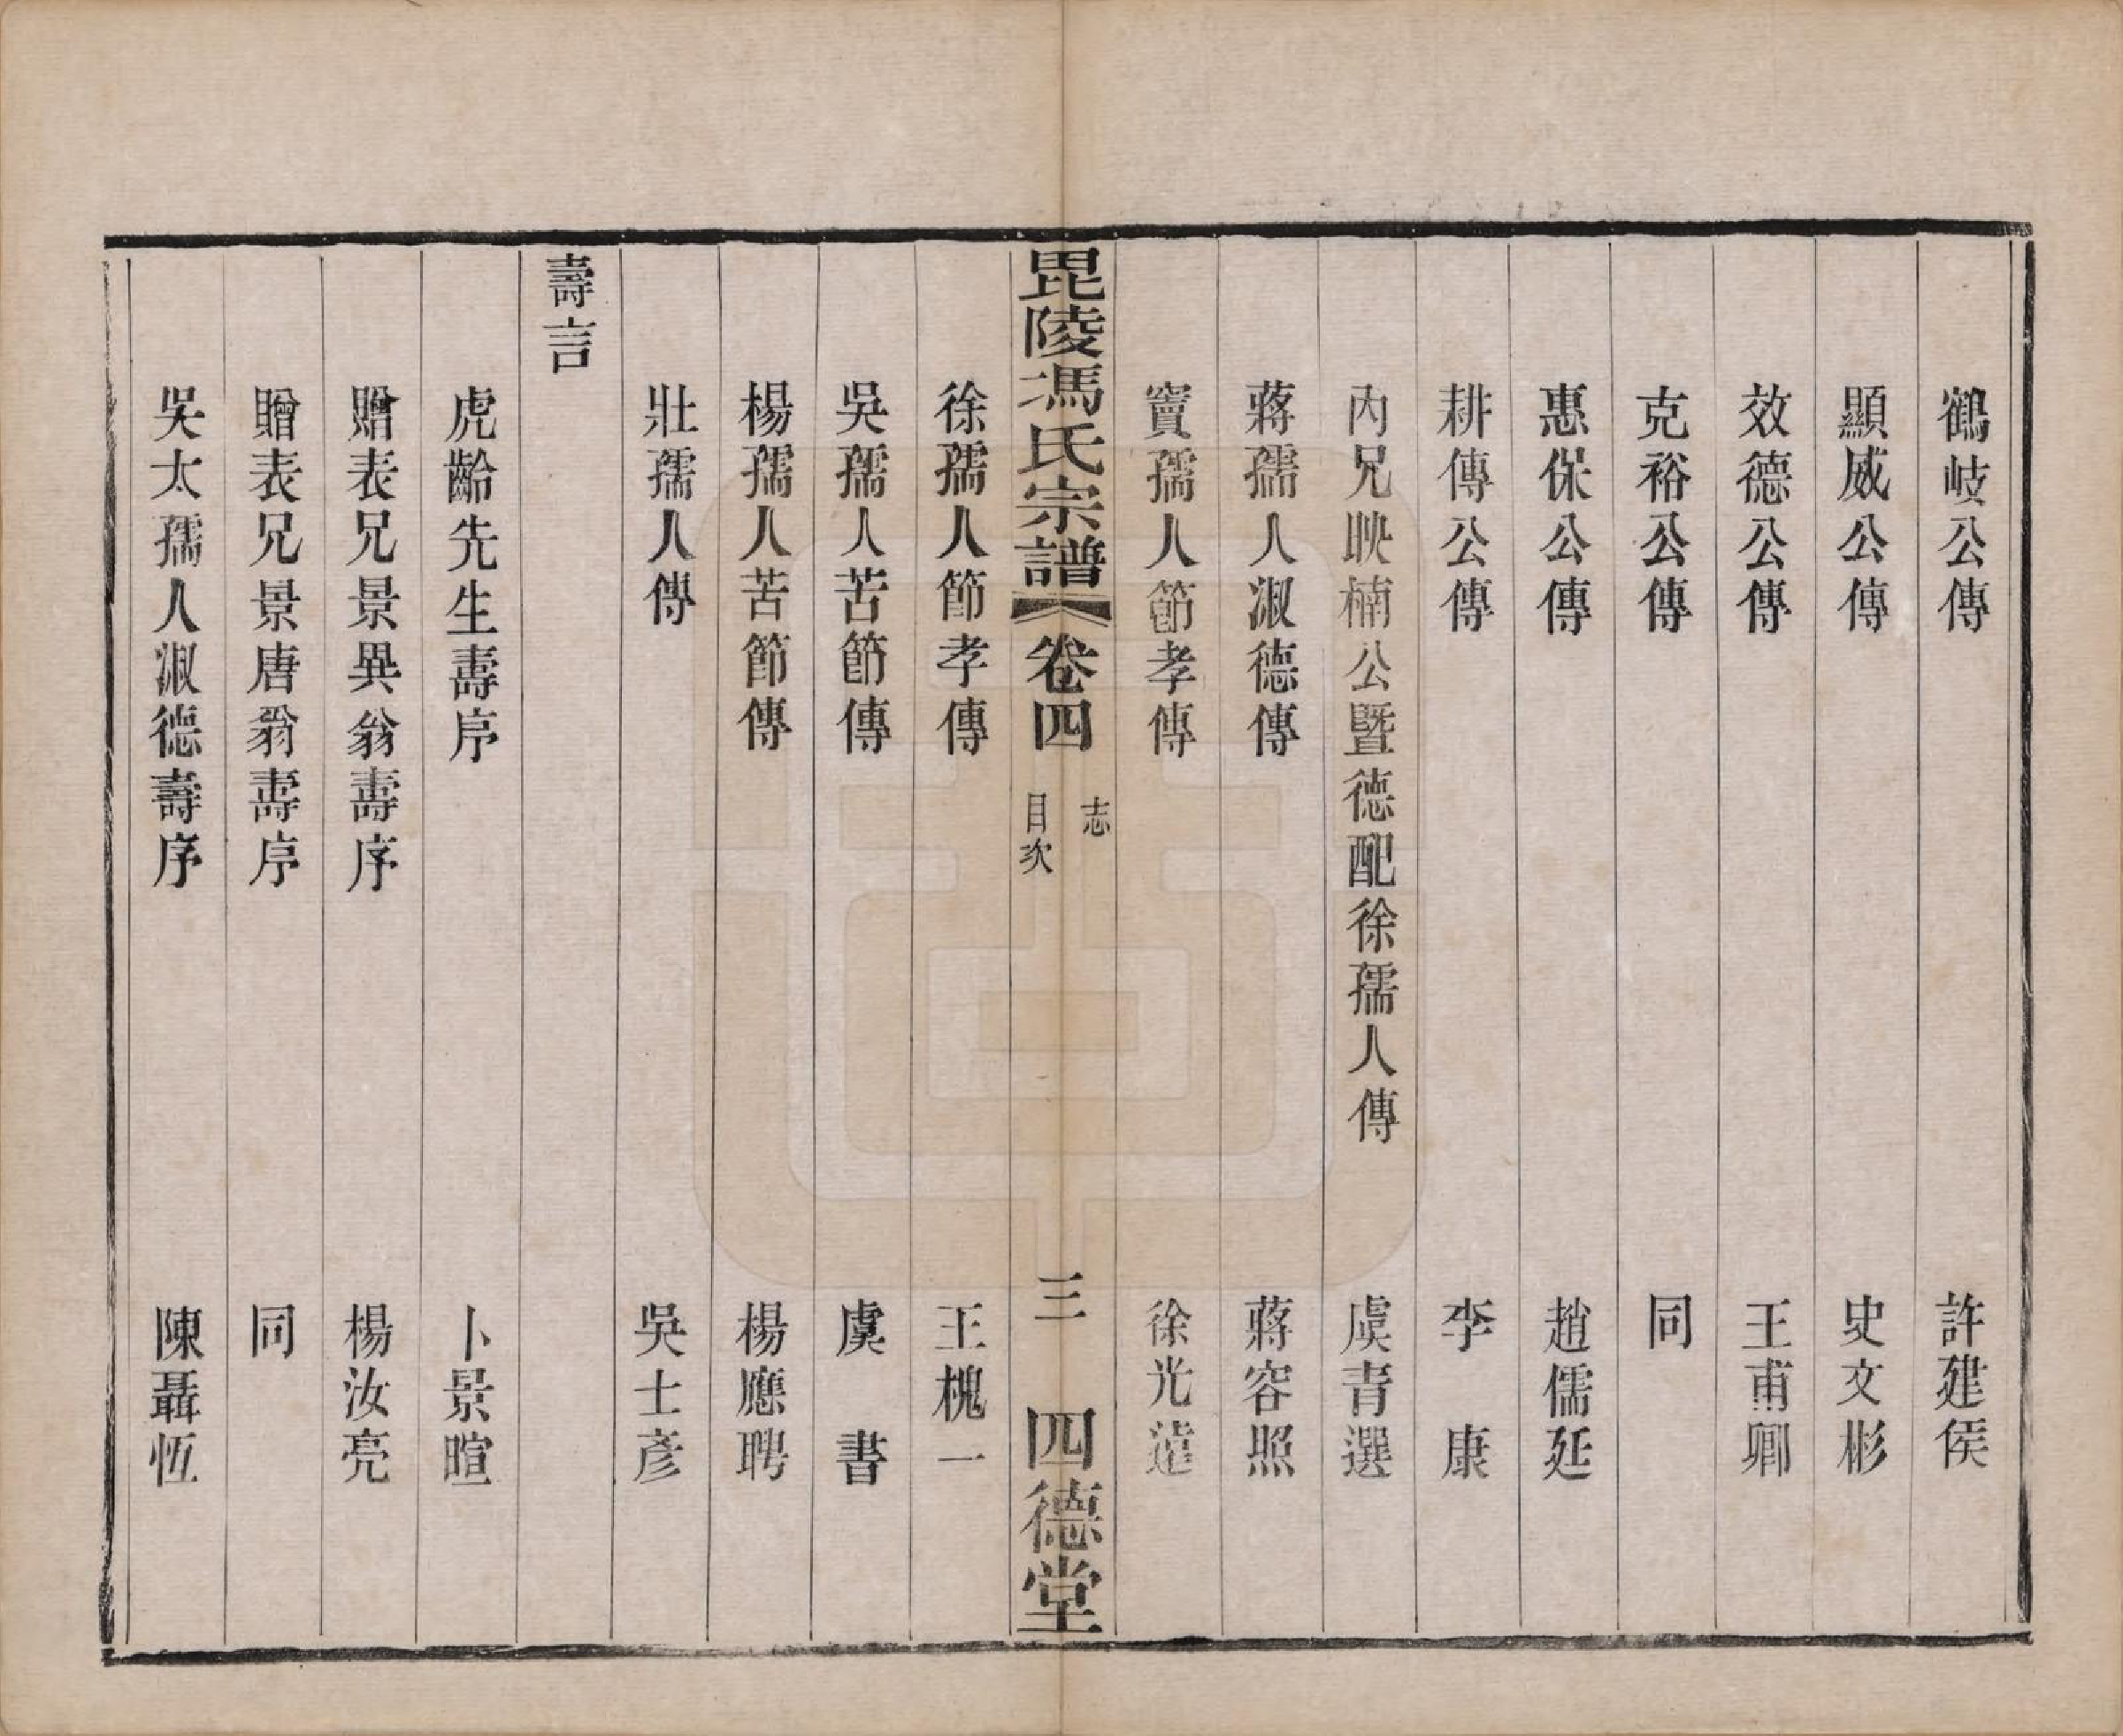 鶴岐公傳　許建侯
顯威公傳　史文彬
效德公傳　王甫卿
克裕公傳　同
惠保公傳　趙儒延
耕傳公傳　李康
內兄映楠公暨德配徐孺人傳　虞青選
蔣孺人淑德傳　蔣容照
竇孺人節孝傳　徐光遠
毘陵馮氏宗譜　卷四　志目次　三　四德堂
徐孺人節孝傳　王槐一
吳孺人苦節傳　虞書
楊孺人苦節傳　楊應聘
壯孺人傳　吳士彥
壽言
虎齡先生壽序　卜景暄
贈表兄景異翁壽序　楊汝亮
贈表兄景唐翁壽序　同
吳太孺人淑德壽序　陳聶恆